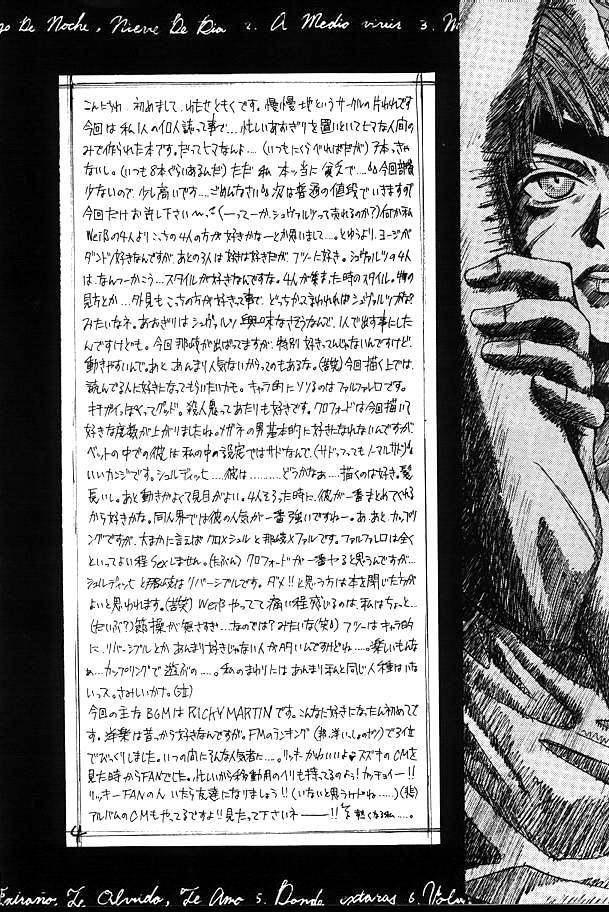 go De Noche, Nieve De Dia 2. A Medio vivir 3. M
こんにちわ。初めまして、ともくです。慢慢地というサークルの片われです
今回は私1人の個人誌って事で…忙しいあおぎりを置いといてヒマな人間の
みで作られた本です。だってヒマなんよ…(いつもにくらべればだが)ア本、さん
ないし。(いつも8本ぐらいあるんだ)ただ私本っ当に貧乏で…。今回部数
少ないので、少し高いです…ごめんなさい。次は普通の値段でいきますので
今回だけお許し下さい〜。(ーってーか、シュヴァルツって売れるのか?)何か私
Weißの4人よりこっちの4人の方が好きかなーとか思いまして…。とゆうより、ヨージが
ダントツ好きなんですが、あとの3人は好きだが、フツーに好き。シュヴァルツの4人
は、なんつーかこう…スタイルが好きなんですな。4人が集まった時のスタイル。物の
見方とか…外見もこっちの方が好きって事で、どっちかってまわれればシュヴァルツかな
みたいなネ。あおぎりはシュヴァルツ興味なさそうなんで、1人で出す事にした
んですけども。今回那岐が出ばってますが、特別好きってんじゃないんですけど、
動きやすいんで。あと、あんまり人気ないからってのもあるな。(苦笑)今回描く上では、
読んでる人に好きになってもらいたいかも。キャラ的にソソるのはファルファレロです。
キチガイっぽくってグッド。殺人鬼ってあたりも好きです。クロフォードは今回描いて
好きな度数が上がりましたね。メガネの男基本的に好きになれないんですが
ベットの中での彼は私の中の設定ではサドなんで、(サドっつってもノーマルサド)
いいカンジです。シュルディッヒ…彼は………どうかなぁ…描くのは好き。髪
長いし。あと動きがよくて見目がよい。4人そろった時に、彼が一番まとめてくれる
から好きかな。同人界では彼の人気が一番強いですねー。あ、あと、カップリ
ングですが、大まかに言えばクロ×シュルと那岐×ファルです。ファルファレロは全く
といってよい程Sexしません。(たぶん)クロフォードが一番ヤると思うんですが…
シュルディッヒと那岐はリバーシブルです。ダメ!!と思う方は本を閉じた方が
よいと思われます。(苦笑)Weißやってて痛い程感じるのは、私はちょっと…
(だいぶ?)節操が無さすぎ…なのでは?みたいな(笑)フツーはキャラ的
に、リバーシブルとかあんまり好きじゃない人が多いんですけどね…。楽しいもんな
ぁ…カップリングで遊ぶの…。私のまわりにはあんまり私と同じ人種はいな
いっス。さみしいかな。(泣)
今回の主なBGMはRICKY MARTINです。こんなに好きになったん初めてで
す。洋楽は昔っから好きなんですが。FMのランキング(洋楽のヤツ)で3位
でびっくりしました。いつの間にそんな人気者に…。リッキーかわいいよ♥スズキのCMを
見た時からFANでした。忙しいから移動用のヘリも持ってるのよう!カッチョイー!!
リッキーFANの人いたら友達になりましょう!!(いないと思うケドね……)(悲)
アルバムのCMもやってるですよ!!見たって下さいネーー!!と、熱くなる私…。
4
Extraño. Te Olvido, Te Amo 5. Donde estaras 6. Volv